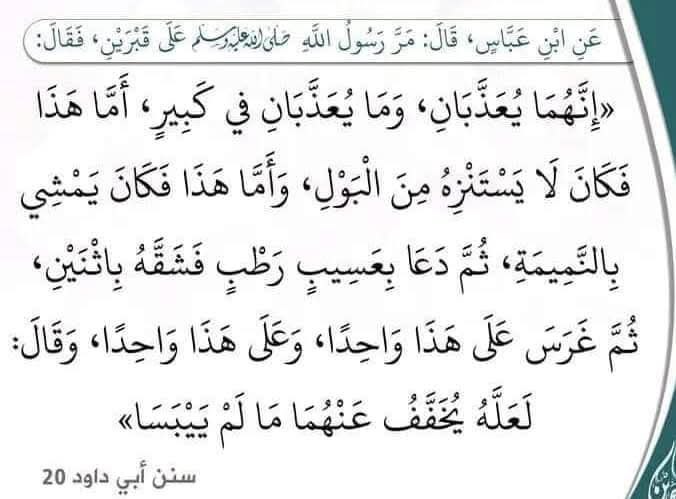 عَنِ ابْنِ عَبَّاسٍ، قَالَ: مَرَّ رَسُولُ اللَّهِ صَلَّى اللَّهُ عَلَيْهِ وَسَلَّمَ عَلَى قَبْرَيْنِ، فَقَالَ:
«إِنَّهُمَا يُعَذَّبَانِ، وَمَا يُعَذَّبَانِ فِي كَبِيرٍ، أَمَّا هَذَا
فَكَانَ لَا يَسْتَنْزِهُ مِنَ الْبَوْلِ، وَأَمَّا هَذَا فَكَانَ يَمْشِي
بِالنَّمِيمَةِ، ثُمَّ دَعَا بِعَسِيبٍ رَطْبٍ فَشَقَّهُ بِاثْنَيْنِ،
ثُمَّ غَرَسَ عَلَى هَذَا وَاحِدًا، وَعَلَى هَذَا وَاحِدًا، وَقَالَ:
لَعَلَّهُ يُخَفَّفُ عَنْهُمَا مَا لَمْ يَيْبَسَا»
سنن أبي داود 20